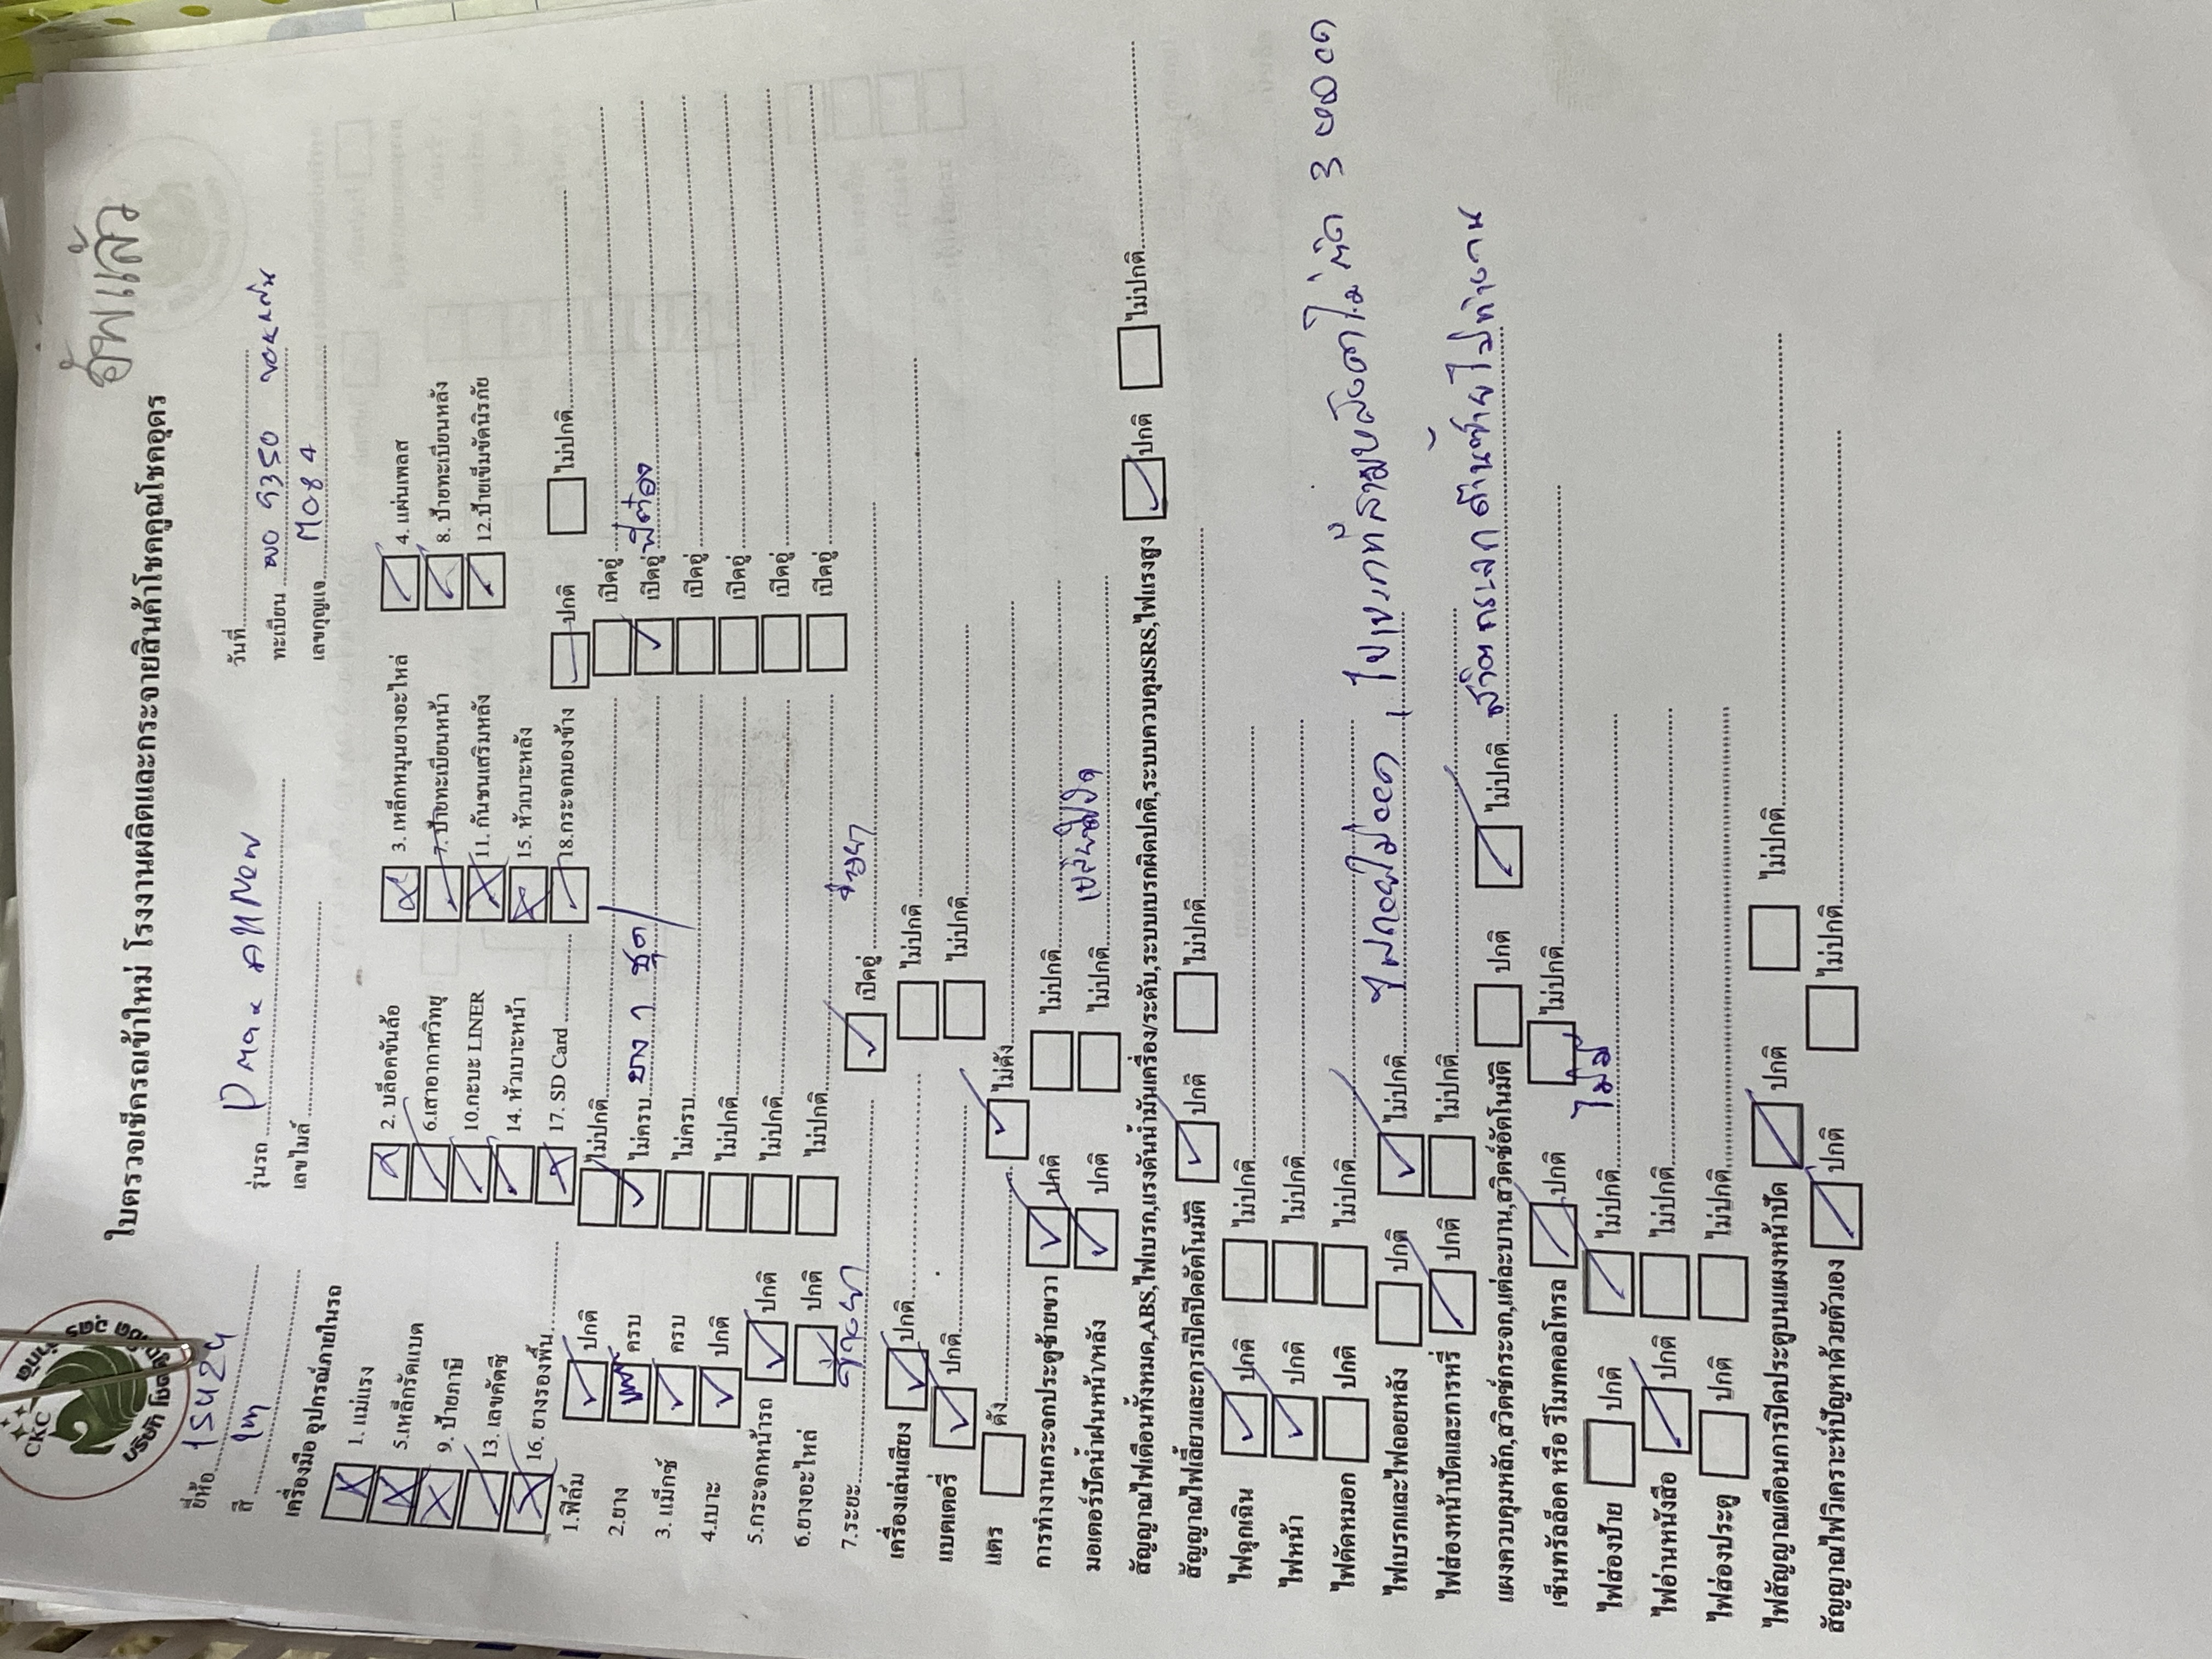 อัพแล้ว
CKC
ใบตรวจเช็ครถเข้าใหม่ โรงงานผลิตและกระจายสินค้าโชคคูณโชคอุดร
ยี่ห้อ ISUZU รุ่นรถ Dmax All New วันที่
สี เทา ทะเบียน 9350 ขอนแก่น
เลขไมล์ เลขกุญแจ M084
เครื่องมือ อุปกรณ์ภายในรถ
1. แม่แรง 2. บล็อคขันล้อ 3. เหล็กหมุนยางอะไหล่ 4. แผ่นเพลส
5.เหล็กรัดแบต 6.เสาอากาศวิทยุ 7.ป้ายทะเบียนหน้า 8. ป้ายทะเบียนหลัง
9. ป้ายภาษี 10.กะบะ LINER 11. กันชนเสริมหลัง 12.ป้ายเข็มขัดนิรภัย
13. เลขคัดซี 14. หัวเบาะหน้า 15. หัวเบาะหลัง
16. ยางรองพื้น 17. SD Card 18.กระจกมองข้าง ปกติ ไม่ปกติ
1.ฟิล์ม ปกติ ไม่ปกติ เปิดอู่
2.ยาง ครบ ไม่ครบ ยาง 1 ชุด เปิดอู่ พี่ต๋อง
3. แม็กซ์ ครบ ไม่ครบ เปิดอู่
4.เบาะ ปกติ ไม่ปกติ เปิดอู่
5.กระจกหน้ารถ ปกติ ไม่ปกติ เปิดอู่
6.ยางอะไหล่ ปกติ ไม่ปกติ เปิดอู่
7.ระยะ เปิดอู่
เครื่องเล่นเสียง ปกติ ไม่ปกติ
แบตเตอรี่ ปกติ ไม่ปกติ
แตร ดัง ไม่ดัง
การทำงานกระจกประตูซ้ายขวา ปกติ ไม่ปกติ
มอเตอร์ปัดน้ำฝนหน้า/หลัง ปกติ ไม่ปกติ
สัญญาณไฟเตือนทั้งหมด,ABS,ไฟเบรก,แรงดันน้ำมันเครื่อง/ระดับ,ระบบเบรกผิดปกติ,ระบบควบคุมSRS,ไฟแรงสูง ปกติ ไม่ปกติ
สัญญาณไฟเลี้ยวและการเปิดปิดอัตโนมัติ ปกติ ไม่ปกติ
ไฟฉุกเฉิน ปกติ ไม่ปกติ
ไฟหน้า ปกติ ไม่ปกติ
ไฟตัดหมอก ปกติ ไม่ปกติ
ไฟเบรกและไฟถอยหลัง ปกติ ไม่ปกติ ไฟถอยไม่ออก , ไฟเบรกที่สามบนหลังคาไม่ติด 3 หลอด
ไฟส่องหน้าปัดและการหรี่ ปกติ ไม่ปกติ
แผงควบคุมหลัก,สวิตช์กระจก,แต่ละบาน,สวิตช์อัตโนมัติ ปกติ ไม่ปกติ สวิตกระจกด้านซ้ายไม่ทำงาน
เซ็นทรัลล็อค หรือ รีโมทคอลโทรล ปกติ ไม่ปกติ
ไฟส่องป้าย ปกติ ไม่ปกติ ไม่มี
ไฟอ่านหนังสือ ปกติ ไม่ปกติ
ไฟส่องประตู ปกติ ไม่ปกติ
ไฟสัญญาณเตือนการปิดประตูบนแผงหน้าปัด ปกติ ไม่ปกติ
สัญญาณไฟวิเคราะห์ปัญหาด้วยตัวเอง ปกติ ไม่ปกติ